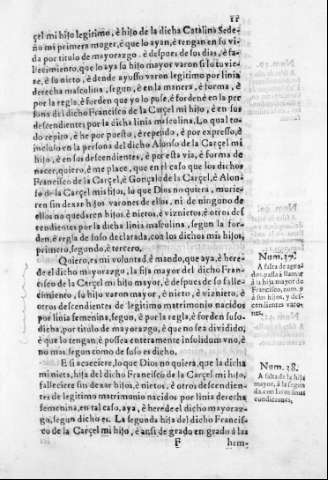 11
çel mi hijo legitimo, è hijo de la dicha Catalina Sede-
ño mi primera muger, è que lo ayan, è tengan en su vi-
da por titulo de mayorazgo. è despues de sus dias, è fa-
llecimiento, que lo aya su hijo mayor varon si lo tuvie-
re, è su nieto, è dende ayusso varon legitimo por linia
derecha masculina, segun, è en la manera, è forma, è
por la regla, è forden que yo lo puse, è fordenè en la per
sona del dicho Francisco de la Carçel mi hijo, è en sus
descendientes por la dicha linia masculina. Lo qual to-
do repito, è he por puesto, è rependo, è por expresso, è
incluso en la persona del dicho Alonso de la Carçel mi
hijo, è en sos descendientes, è por esta via, è forma de
nacer, quiero, è me place, que en el caso que los dichos
Francisco de la Carçel, è Gonçalo de la Carçel, è Alon-
so de la Carçel mis hijos, lo que Dios no quiera, murie-
ren sin dexar hijos varones de ellos, ni de ninguno de
ellos no quedaren hijos, è nietos, è viznietos, è otros des
cendientes por la dicha linia masculina, segun la for-
den, è regla de suso declarada, con los dichos mis hijos,
primero, segundo, è tercero.
Quiero, es mi voluntad, è mando, que aya, è here-
de el dicho mayorazgo, la fija mayor del dicho Fran-
cisco de la Carçel mi hijo mayor, è despues de so falle-
cimiento, su hijo varon mayor, è nieto, è viznieto, è
otros descendientes de legitimo matrimonio nacidos
por linia femenina, segun, è por la regla, è forden suso-
dicha, por titulo de mayorazgo, è que no sea dividido;
è que lo tengan, è possea enteramente insolidum vno, è
no mas, segun como de suso es dicho.
E si acaeciere, lo que Dios no quiera, que la dicha
mi nieta, hija del dicho Francisco de la Carçel mi hijo,
falleciere sin dexar hijos, è nietos, è otros descendien-
tes de legitimo matrimonio nacidos por linia derecha
femenina, en tal caso, aya, è herede el dicho mayoraz-
go, segun dicho es. La segunda hija del dicho Francis-
co de la Carçel mi hijo, è ansi de grado en grado à las
F hem-
Num. 27.
A falta de agna-
dos passa, è llama
à la hija mayor de
Francisco, num. 5
à sus hijos, y des-
cendientes varo-
nes.
Num. 28.
A falta de la hija
mayor, à la segun
da con las mismas
condiciones.